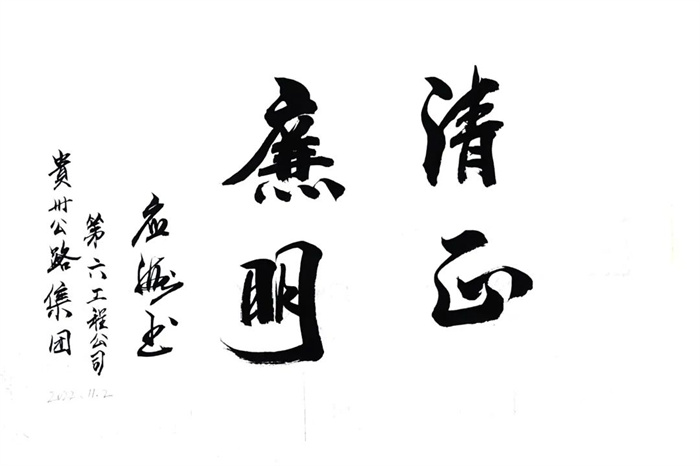 清正
廉明
书
貴州公路集团
第六工程公司
2022.11.2